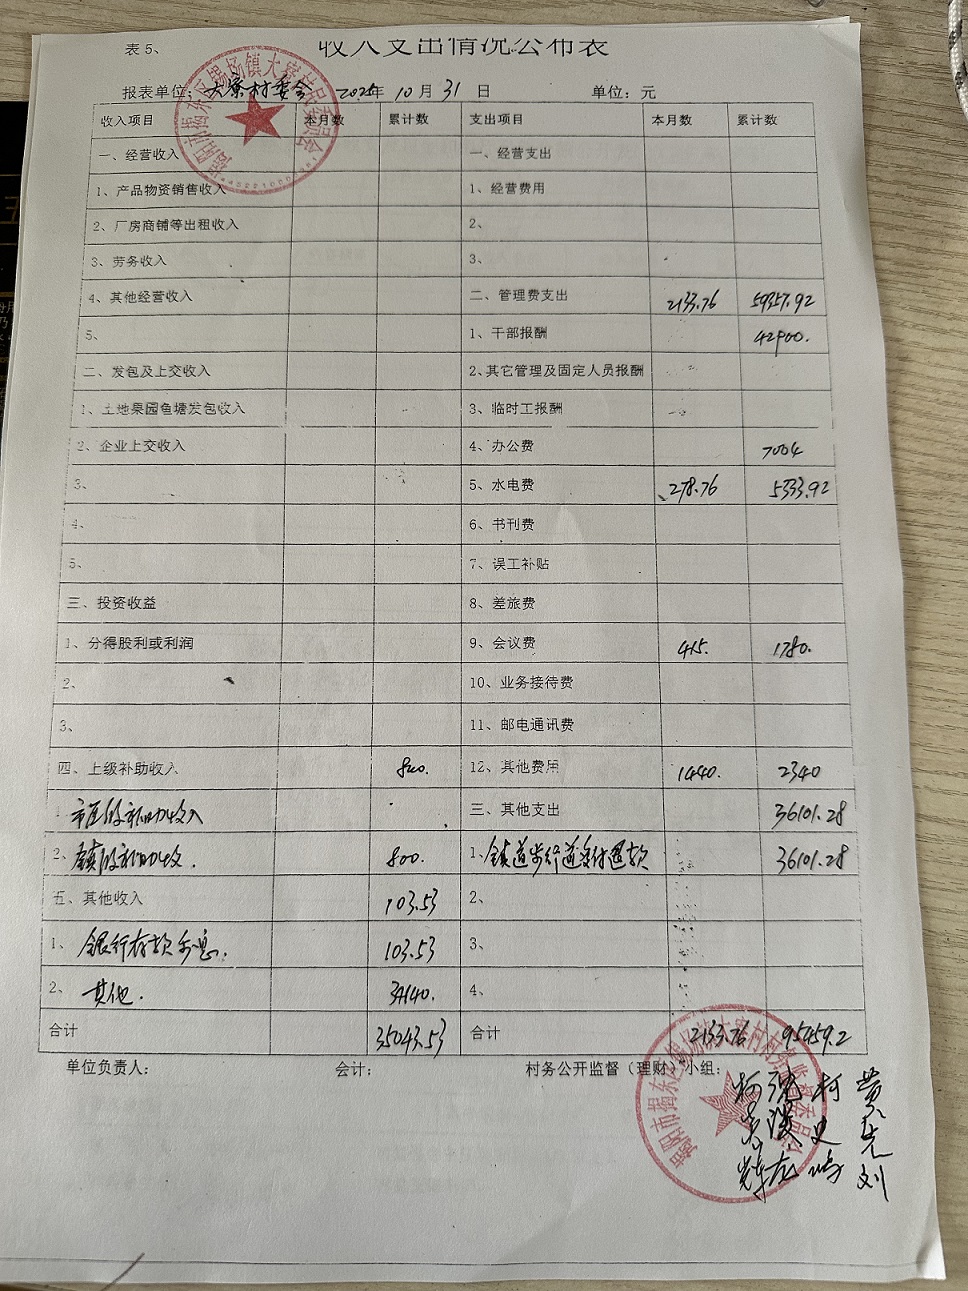 表 5、
收入支出情况公布表
报表单位：大寮村委会 2025年 10月 31日 单位：元
收入项目 本月数 累计数 支出项目 本月数 累计数
一、经营收入 一、经营支出
1、产品物资销售收入 1、经营费用
2、厂房商铺等出租收入 2、
3、劳务收入 3、
4、其他经营收入 二、管理费支出 2133.76 59357.92
5、 1、干部报酬 42900.
二、发包及上交收入 2、其它管理及固定人员报酬
1、土地果园鱼塘发包收入 3、临时工报酬
2、企业上交收入 4、办公费 7004
3、 5、水电费 278.76 5333.92
4、 6、书刊费
5、 7、误工补贴
三、投资收益 8、差旅费
1、分得股利或利润 9、会议费 415. 1780.
2、 10、业务接待费
3、 11、邮电通讯费
四、上级补助收入 800. 12、其他费用 1440. 2340
1 市区级补助收入 三、其他支出 36101.28
2、镇级补助收 800. 1、镇道 36101.28
五、其他收入 103.53 2、
1、银行存款利息. 103.53 3、
2、其他. 34140. 4、
合计 35043.53 合计 2133.76 95459.2
单位负责人： 会计： 村务公开监督（理财）小组：